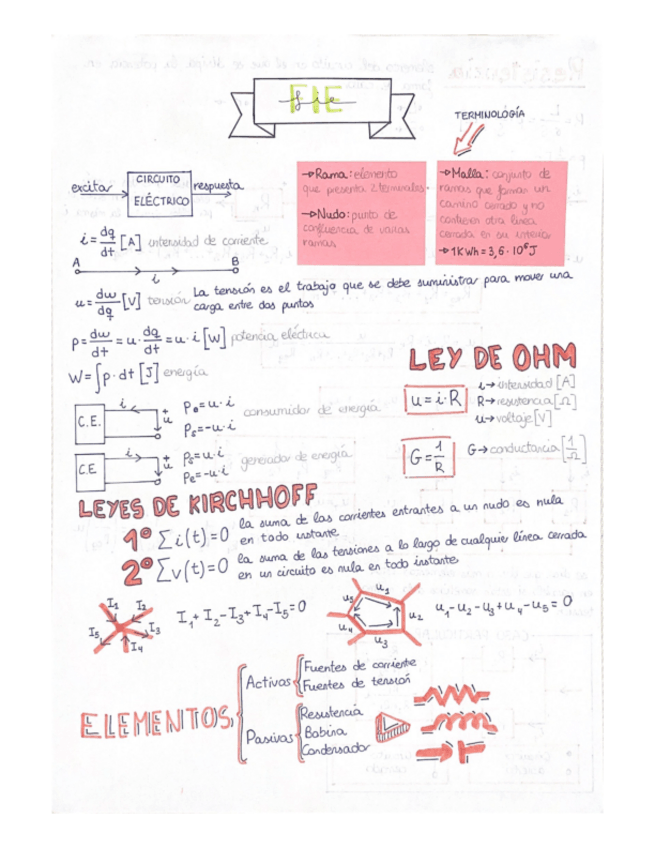 FIE
fie
TERMINOLOGÍA
excitar
CIRCUITO
ELÉCTRICO
respuesta
→Rama: elemento
que presenta 2 terminales.
→Nudo: punto de
confluencia de varias
ramas
→Malla: conjunto de
ramas que forman un
camino cerrado y no
contienen otra línea
cerrada en su interior
→1KWh=3,6·10⁶J
i=dq/dt [A] intensidad de corriente
A B
i
u=dw/dq [V] tensión
La tensión es el trabajo que se debe suministrar para mover una
carga entre dos puntos
p=dw/dt=u·dq/dt=u·i [W] potencia eléctrica
W=∫p·dt [J] energía
LEY DE OHM
u=i·R
i→intensidad [A]
R→resistencia [Ω]
u→voltaje [V]
G=1/R
G→conductancia [1/Ω]
C.E.
i
+
u
Pe=u·i
Ps=-u·i
consumidor de energía
C.E
i
+
u
Ps=u·i
Pe=-u·i
generador de energía
LEYES DE KIRCHHOFF
1º Σi(t)=0
la suma de las corrientes entrantes a un nudo es nula
en todo instante
2º Σv(t)=0
la suma de las tensiones a lo largo de cualquier línea cerrada
en un circuito es nula en todo instante
I1 I2 I3 I4 I5
I1+I2-I3+I4-I5=0
u1 u2 u3 u4 u5
u1-u2-u3+u4-u5=0
ELEMENTOS
Activas
Fuentes de corriente
Fuentes de tensión
Pasivas
Resistencia
Bobina
Condensador